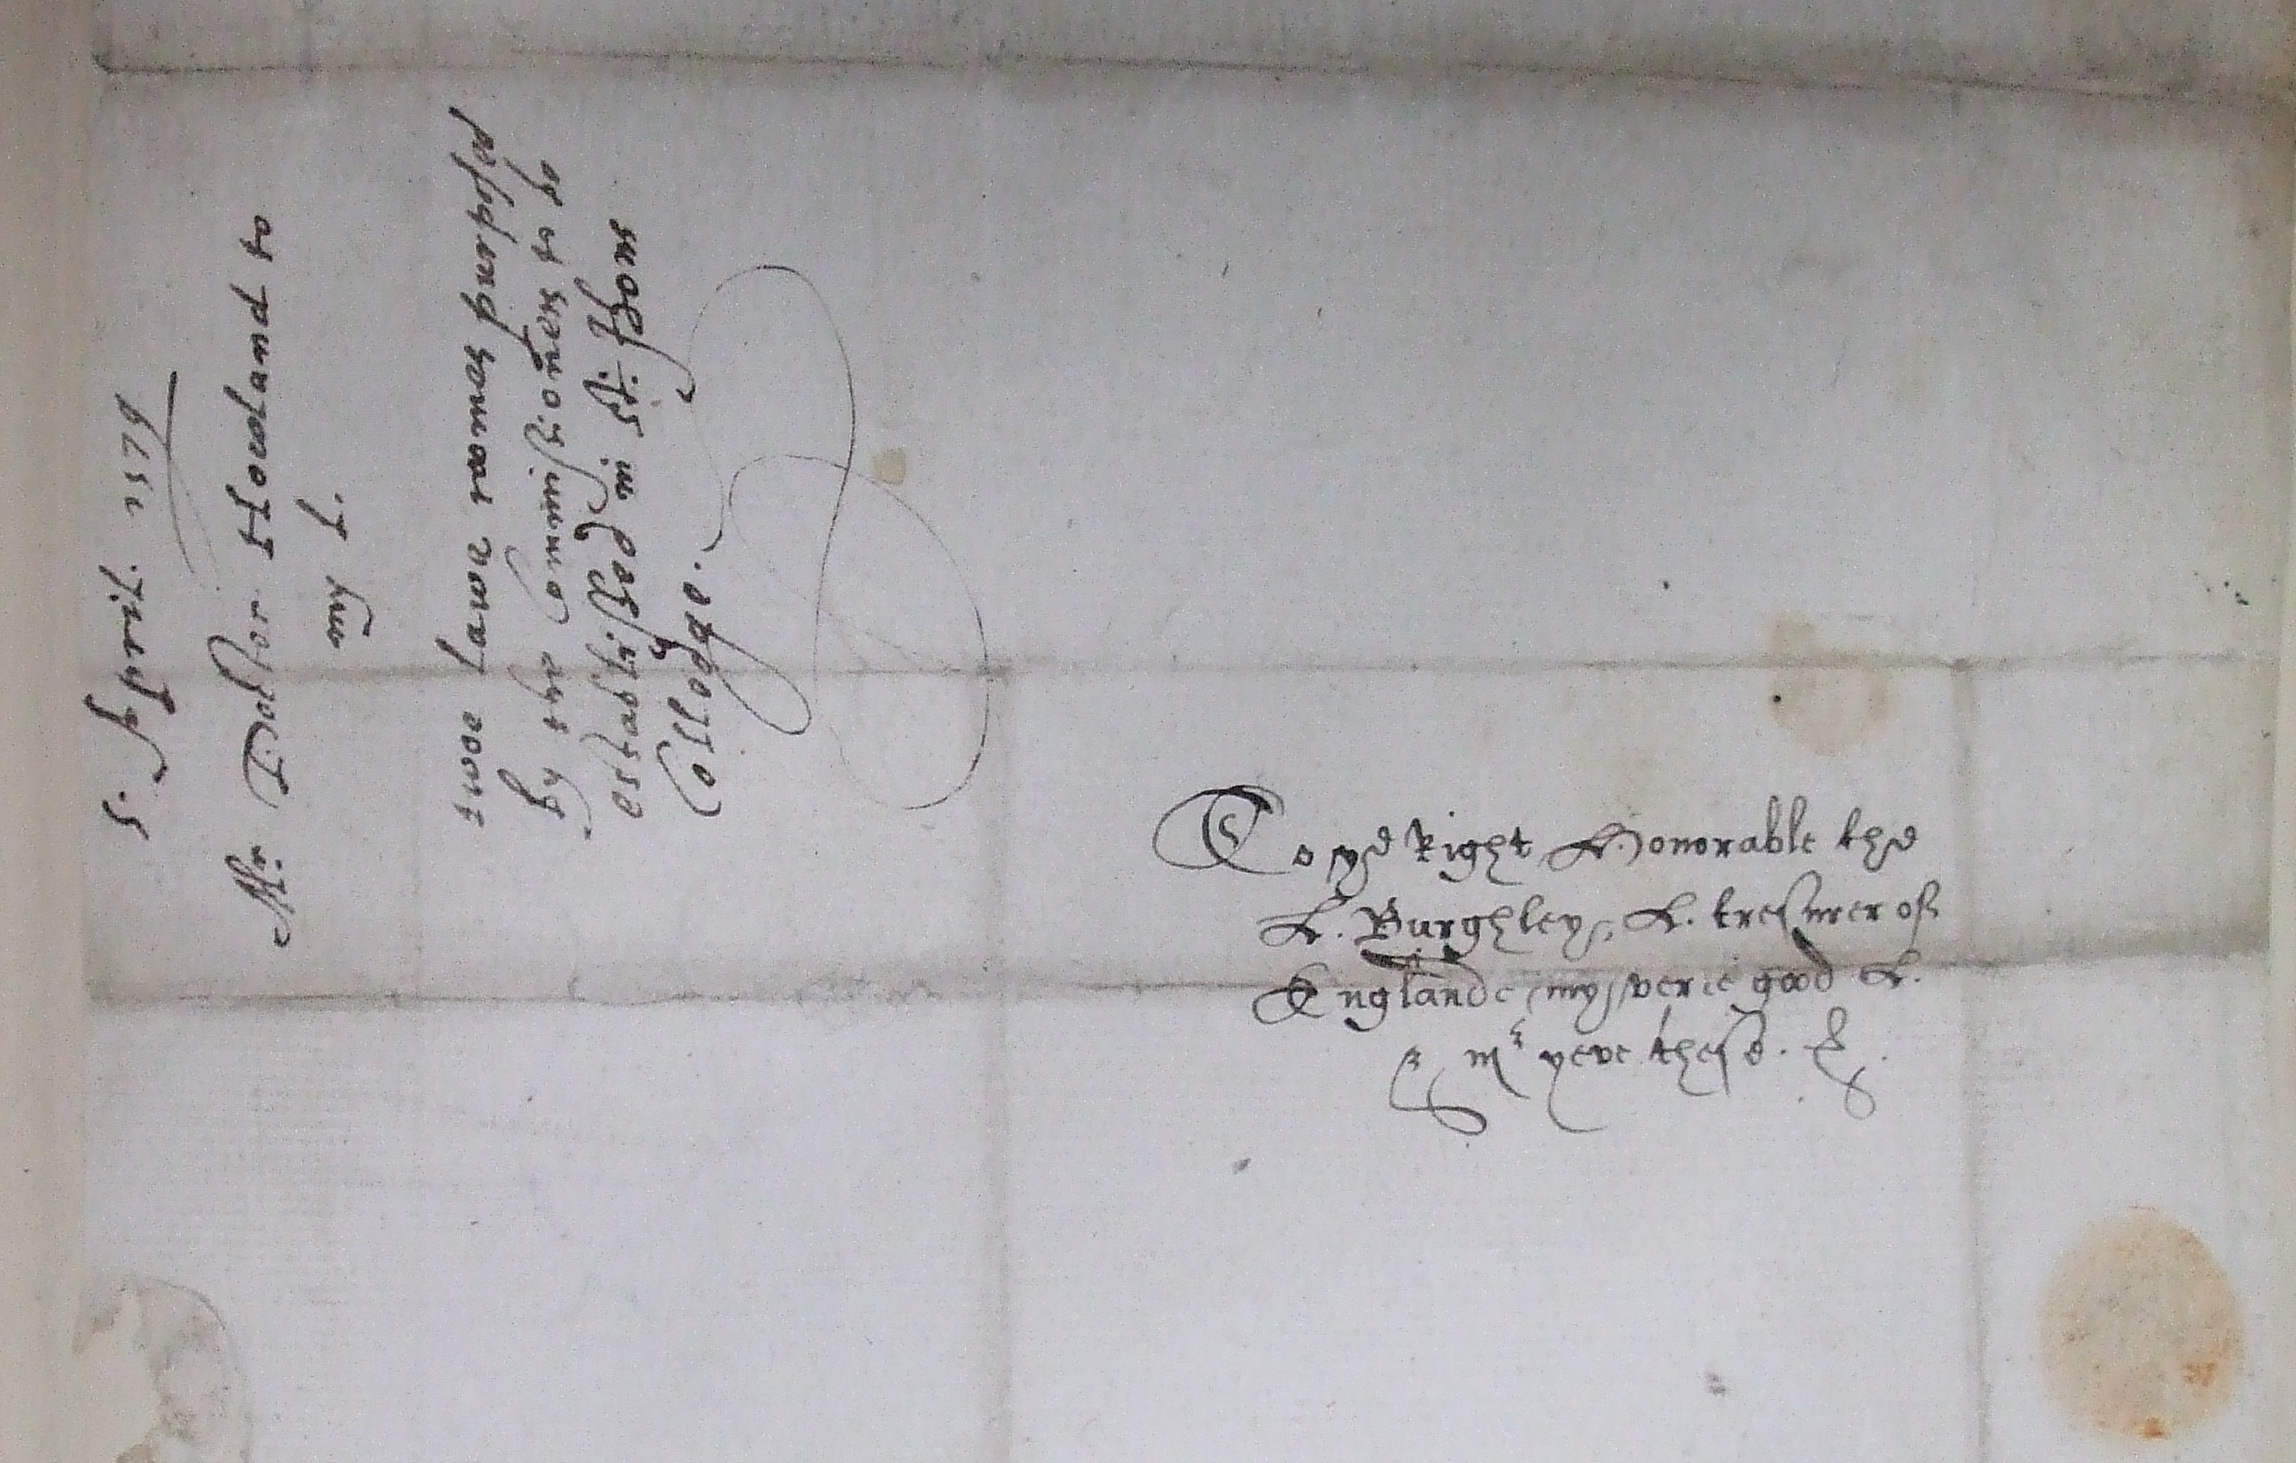 5. April. 1579
Mr. Doctor Howland to
my L.
twoe lawe romes purposed
by the Commissioners to be
established in St. Jhons
Colledge.
To ye Right Honorable the
L. Burghley, L. tresurer of
Englande my verie good L.
& mr yeve these. &.